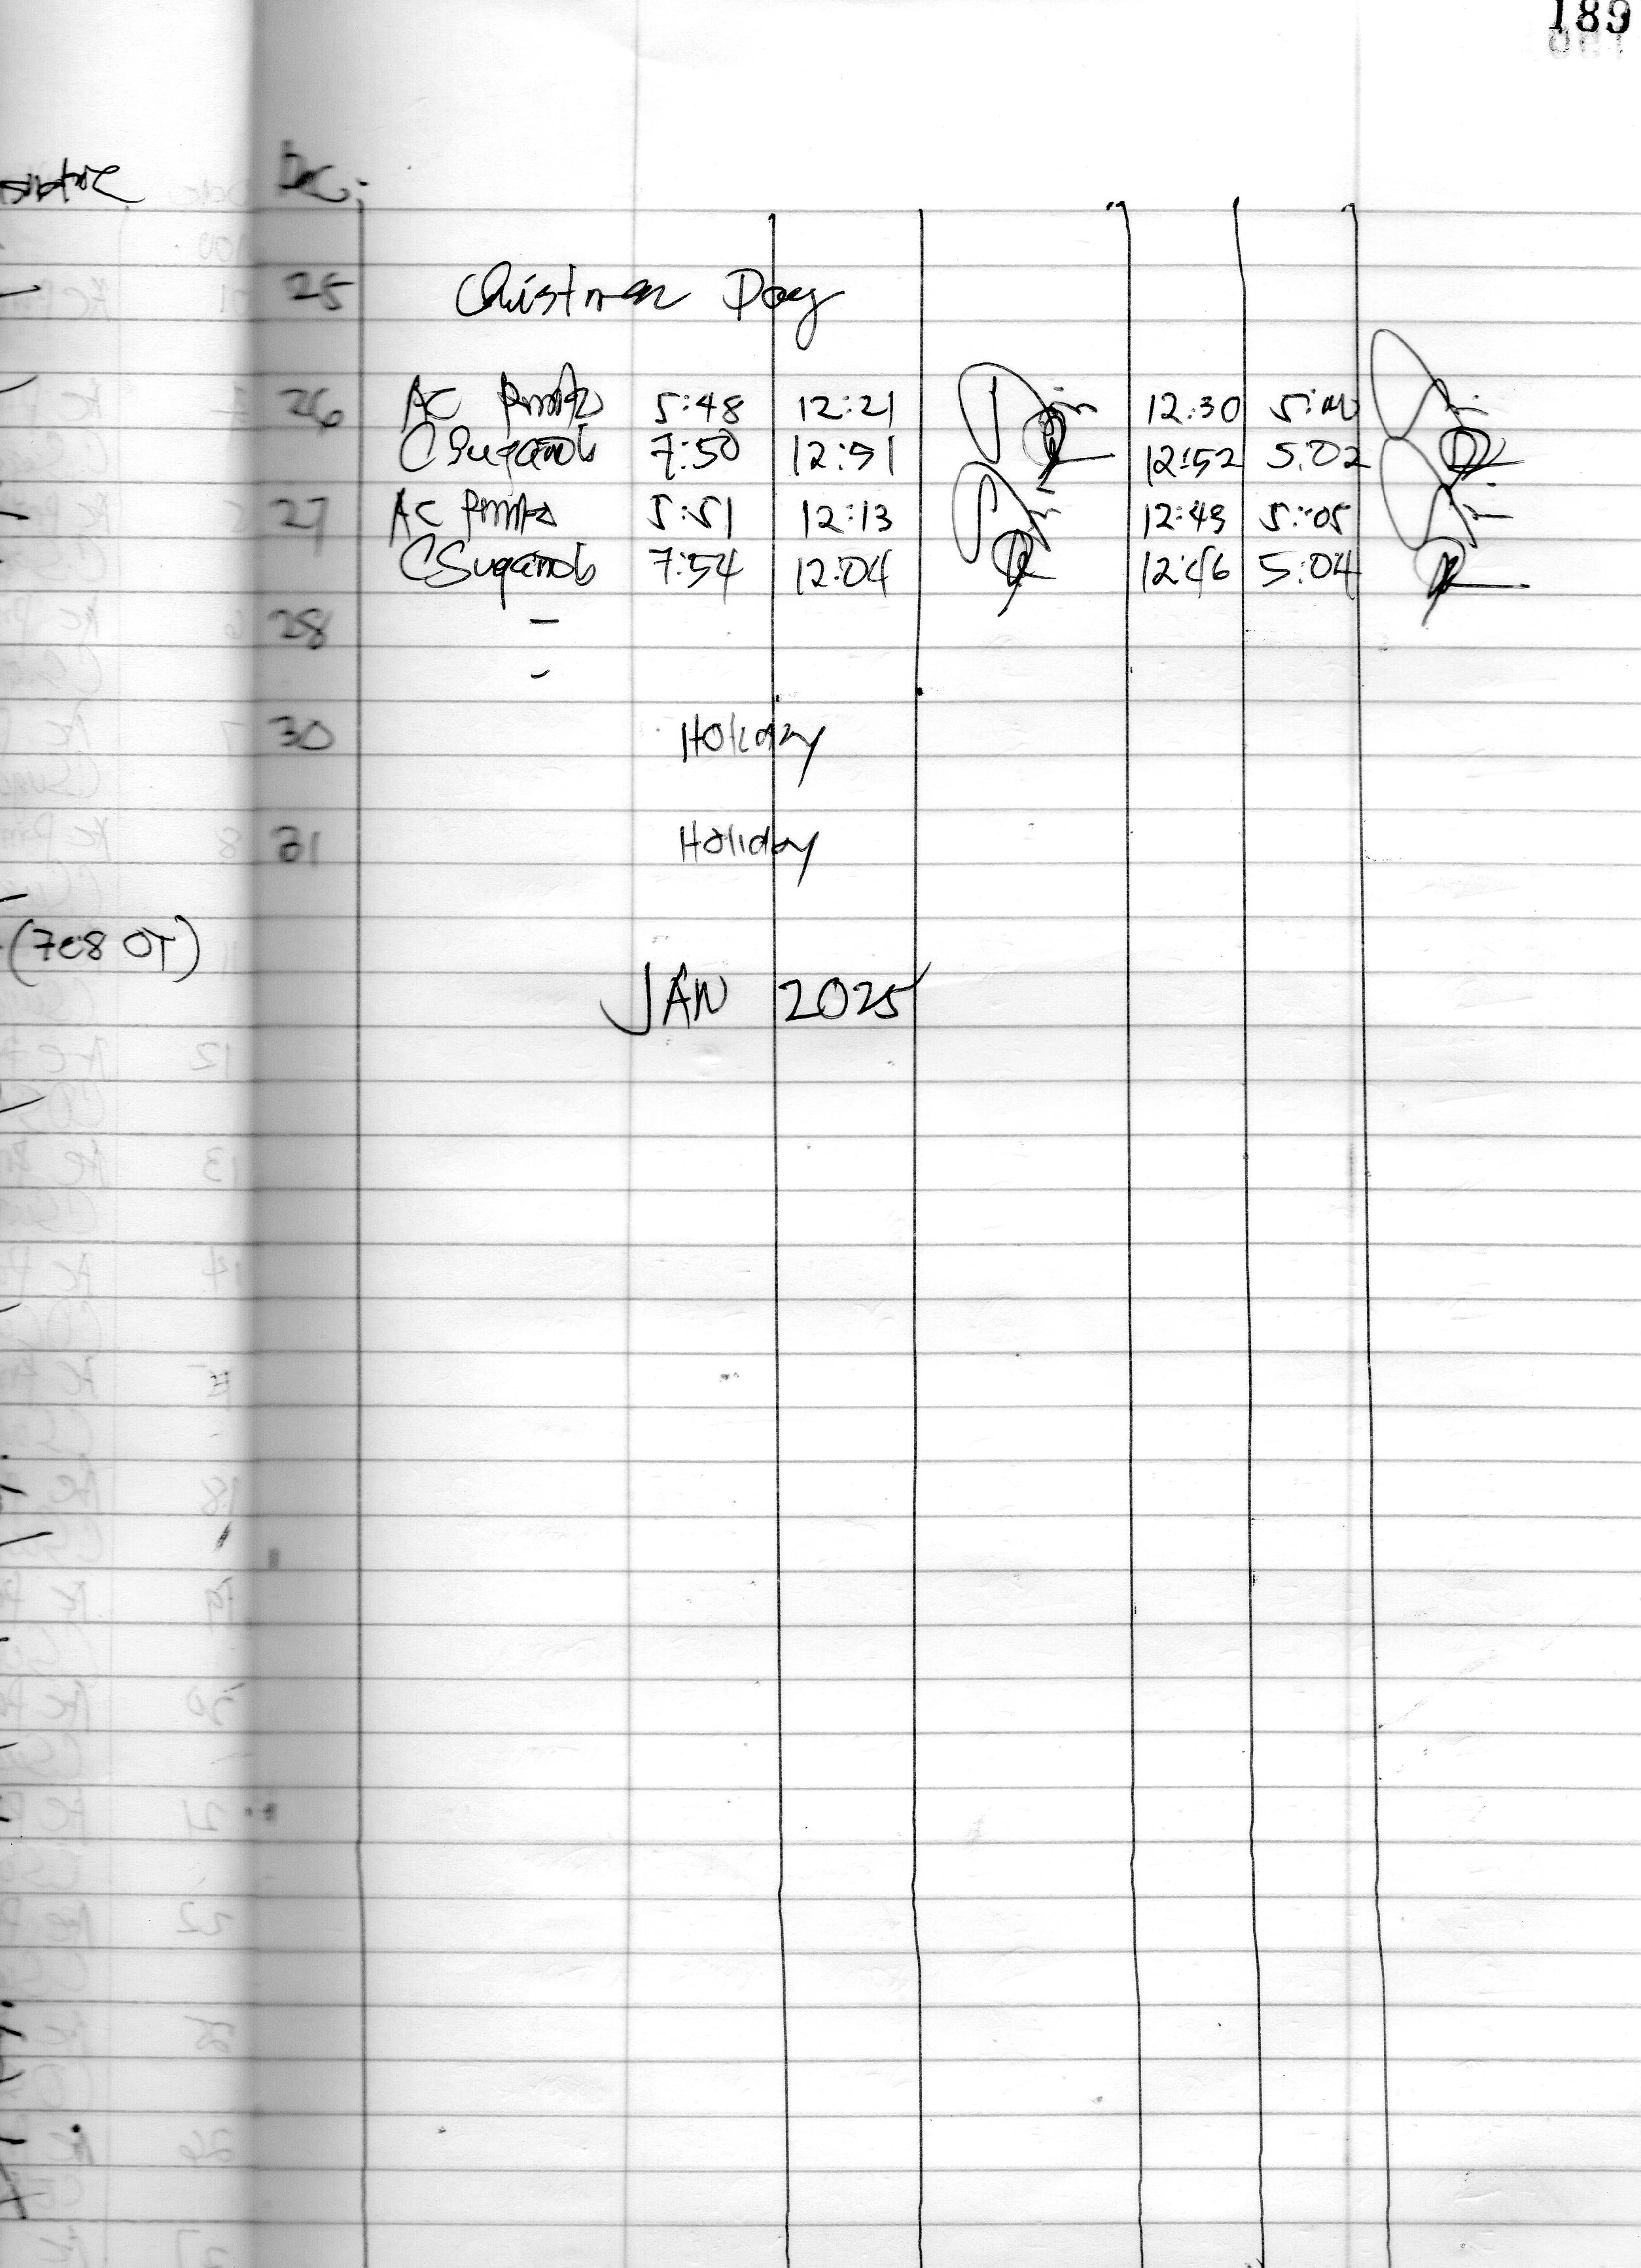 189
Dec.
25 Christmas Day
26 AC 5:48 12:21 12:30 5:00
CSuganob 7:50 12:51 12:52 5:02
27 AC 5:51 12:13 12:49 5:05
CSuganob 7:54 12:04 12:46 5:04
28 -
-
30 Holiday
31 Holiday
(7&8 OT)
JAN 2025